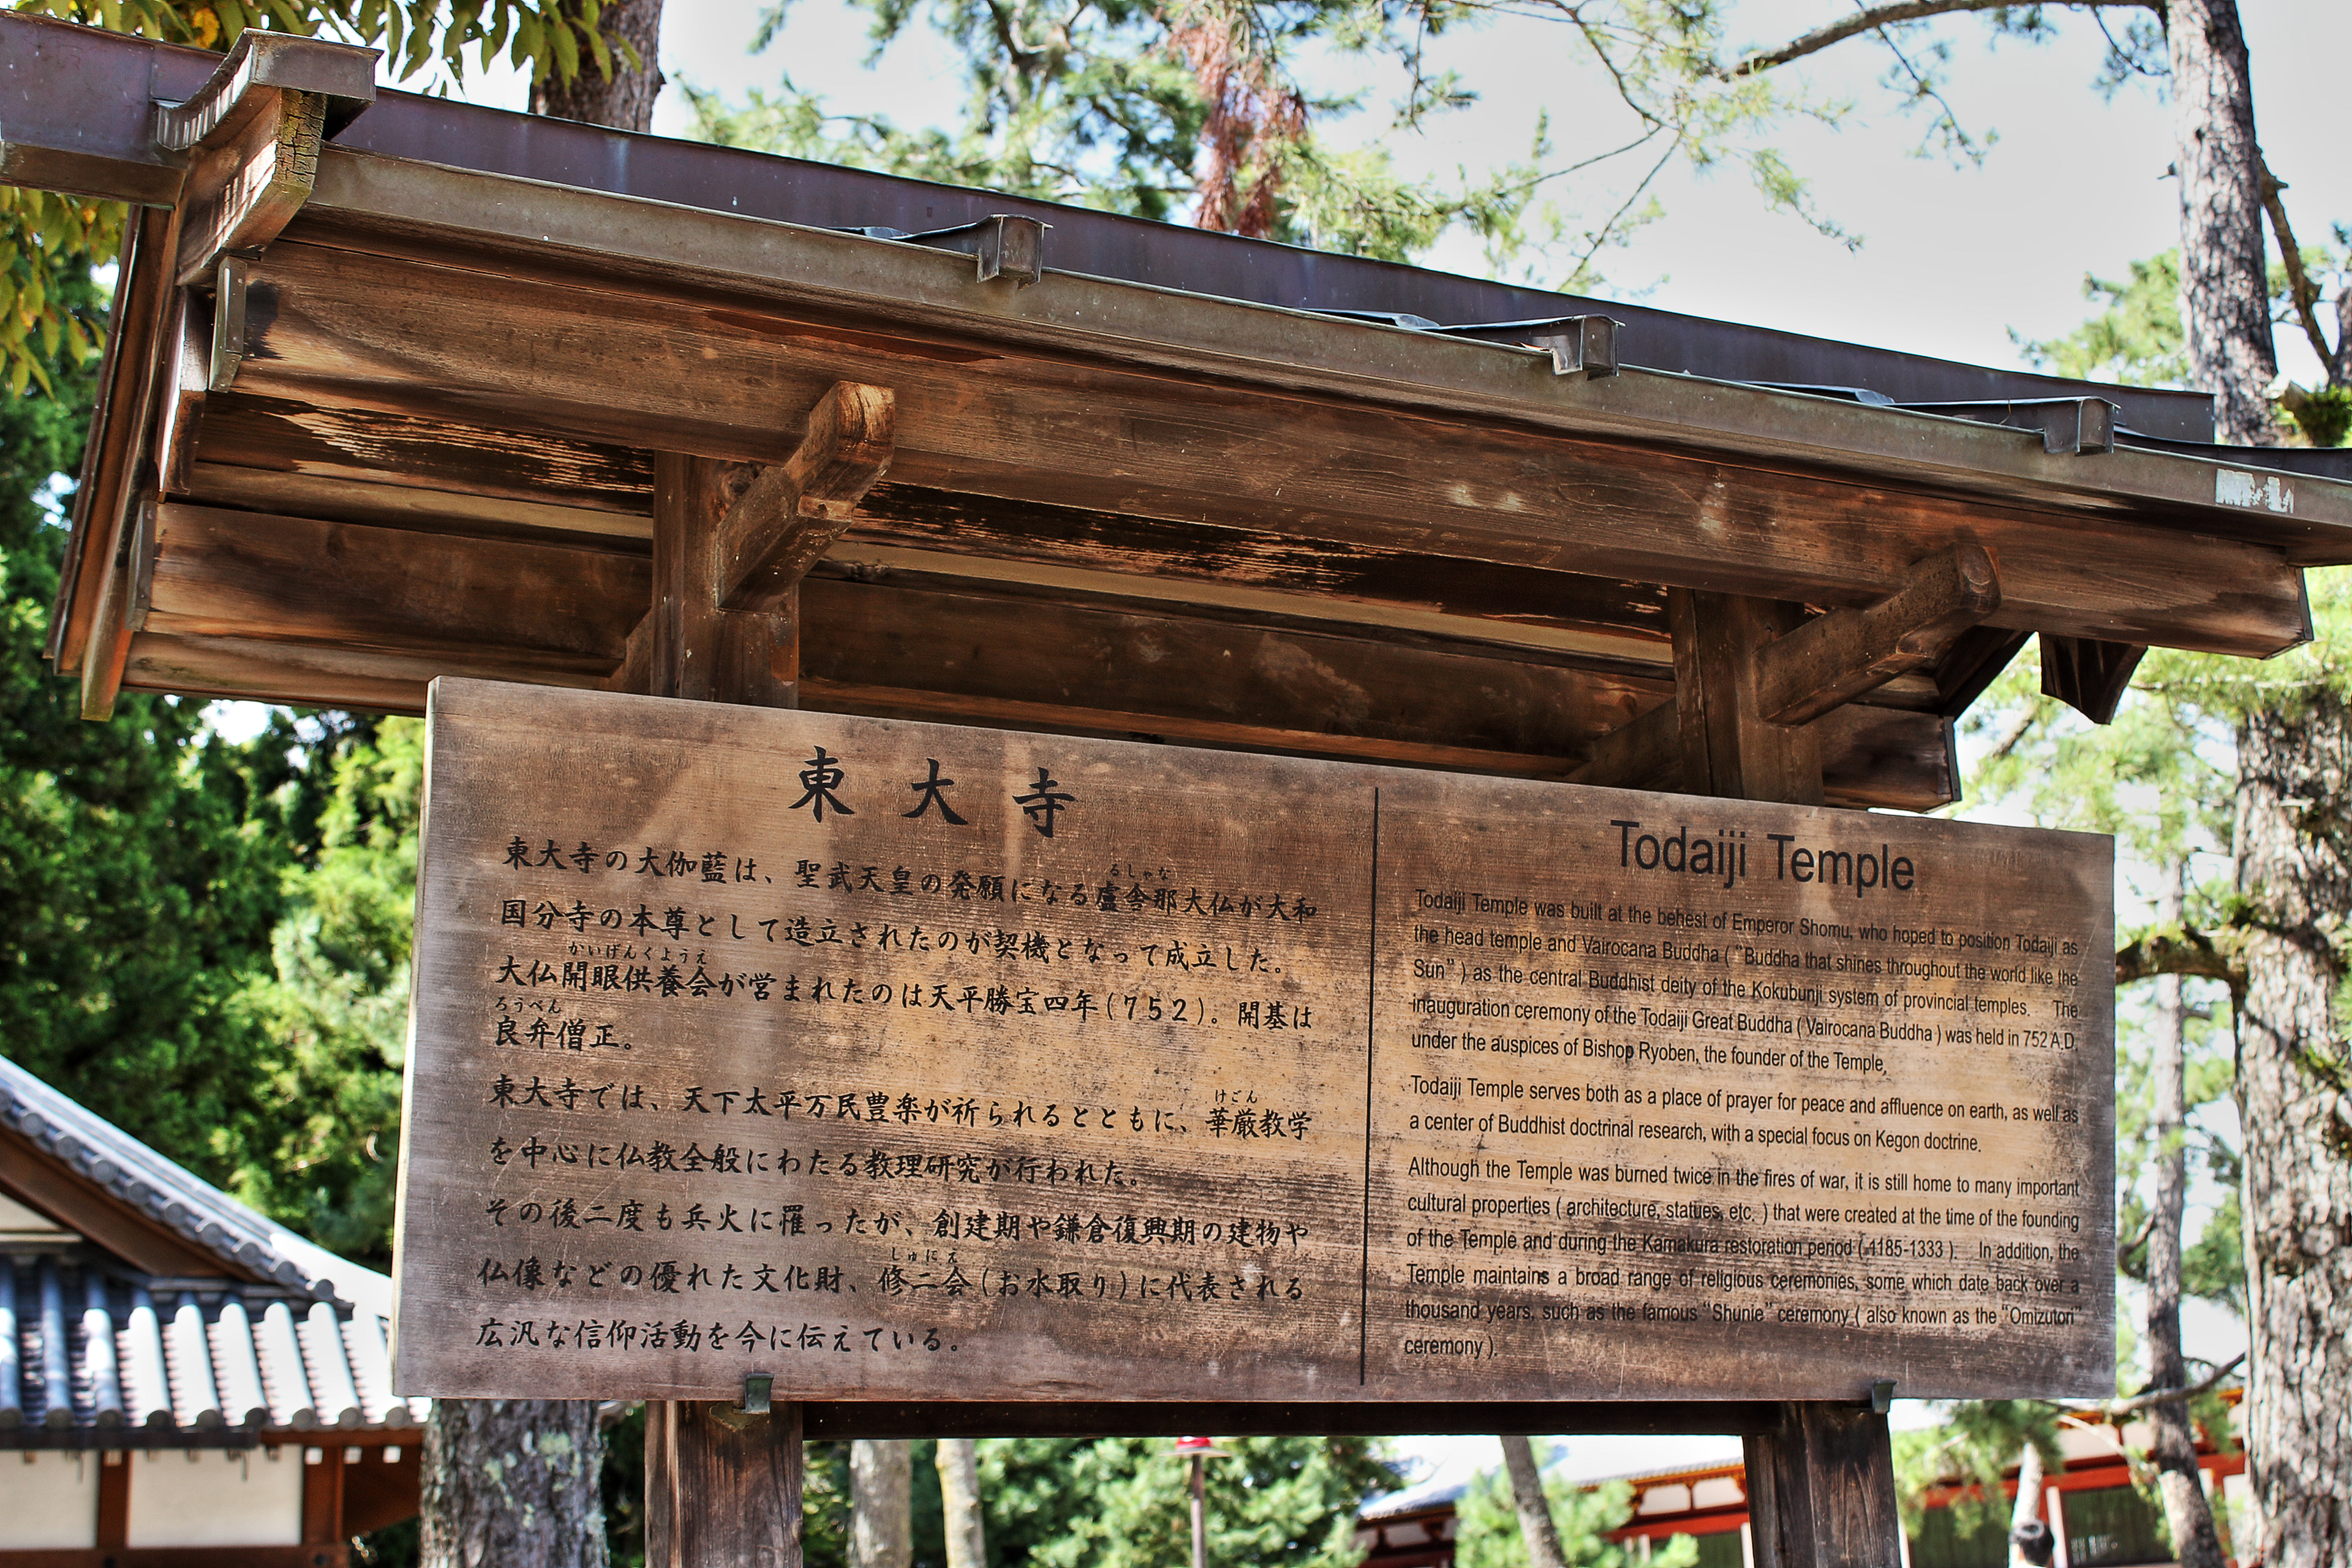 東大寺
東大寺の大伽藍は、聖武天皇の発願になる盧舎那大仏が大和
るしゃな
国分寺の本尊として造立されたのが契機となって成立した。
かいげんくようえ
大仏開眼供養会が営まれたのは天平勝宝四年(752)。開基は
ろうべん
良弁僧正。
東大寺では、天下太平万民豊楽が祈られるとともに、華厳教学
けごん
を中心に仏教全般にわたる教理研究が行われた。
その後二度も兵火に罹ったが、創建期や鎌倉復興期の建物や
しゅにえ
仏像などの優れた文化財、修二会(お水取り)に代表される
広汎な信仰活動を今に伝えている。
Todaiji Temple
Todaiji Temple was built at the behest of Emperor Shomu, who hoped to position Todaiji as
the head temple and Vairocana Buddha ( "Buddha that shines throughout the world like the
Sun" ) as the central Buddhist deity of the Kokubunji system of provincial temples. The
inauguration ceremony of the Todaiji Great Buddha ( Vairocana Buddha ) was held in 752 A.D.
under the auspices of Bishop Ryoben, the founder of the Temple.
Todaiji Temple serves both as a place of prayer for peace and affluence on earth, as well as
a center of Buddhist doctrinal research, with a special focus on Kegon doctrine.
Although the Temple was burned twice in the fires of war, it is still home to many important
cultural properties ( architecture, statues, etc. ) that were created at the time of the founding
of the Temple and during the Kamakura restoration period ( 1185-1333 ). In addition, the
Temple maintains a broad range of religious ceremonies, some which date back over a
thousand years, such as the famous "Shunie" ceremony ( also known as the "Omizutori"
ceremony ).